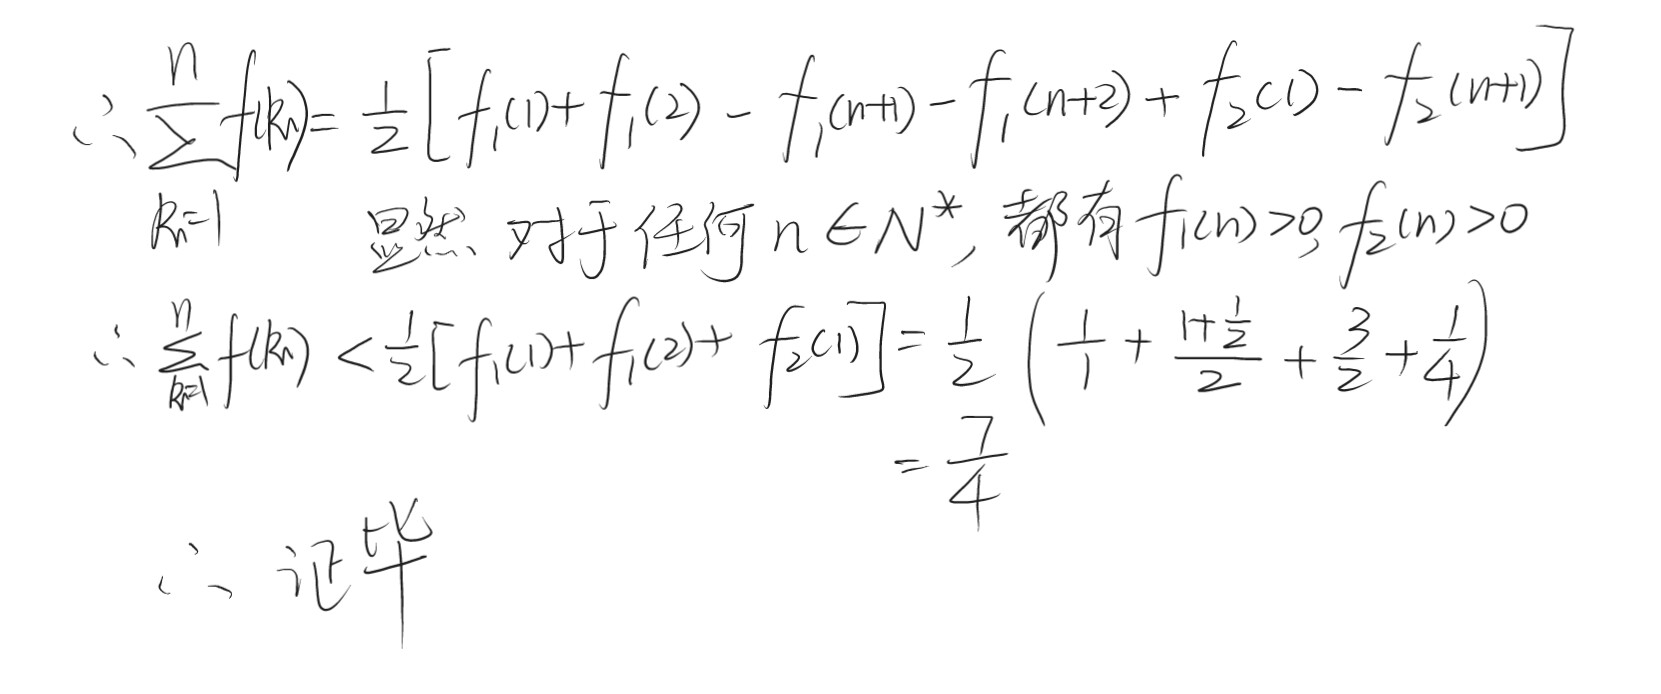 ∴ \sum_{k=1}^{n} f(k) = \frac{1}{2} [f_1(1) + f_1(2) - f_1(n+1) - f_1(n+2) + f_2(1) - f_2(n+1)]
显然 对于任何 n ∈ N*, 都有 f_1(n) > 0, f_2(n) > 0
∴ \sum_{k=1}^{n} f(k) < \frac{1}{2} [f_1(1) + f_1(2) + f_2(1)] = \frac{1}{2} ( \frac{1}{1} + \frac{1+\frac{1}{2}}{2} + \frac{3}{2} + \frac{1}{4} )
= \frac{7}{4}
∴ 证毕